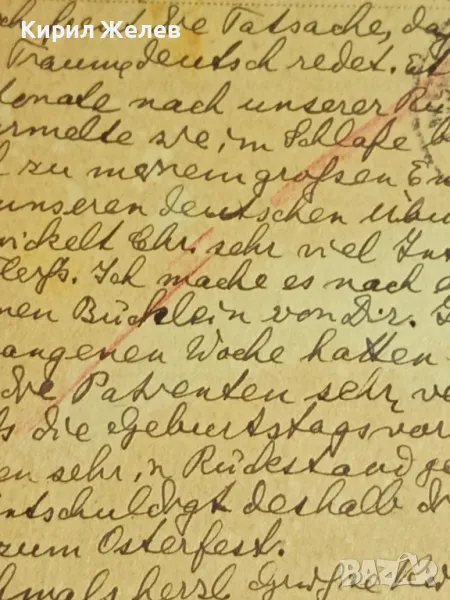 Кирил Желев
die Tatsache, da
Traum deutsch redet. Et
Monate nach unserer Rü
urmelte sie, im Schlafe b
zu meinem grossen En
unseren deutschen Übu
wickelt Chr. sehr viel Int
Ich mache es nach
nen Büchlein von Dir.
angenen Woche hatten
die Patienten sehr, ve
die Geburtstagsvor
en sehr, in Rückstand ge
ntschuldigt deshalb di
zum Osterfest.
hmals herzl. Grüsse
Кирил Желев
BAZAR